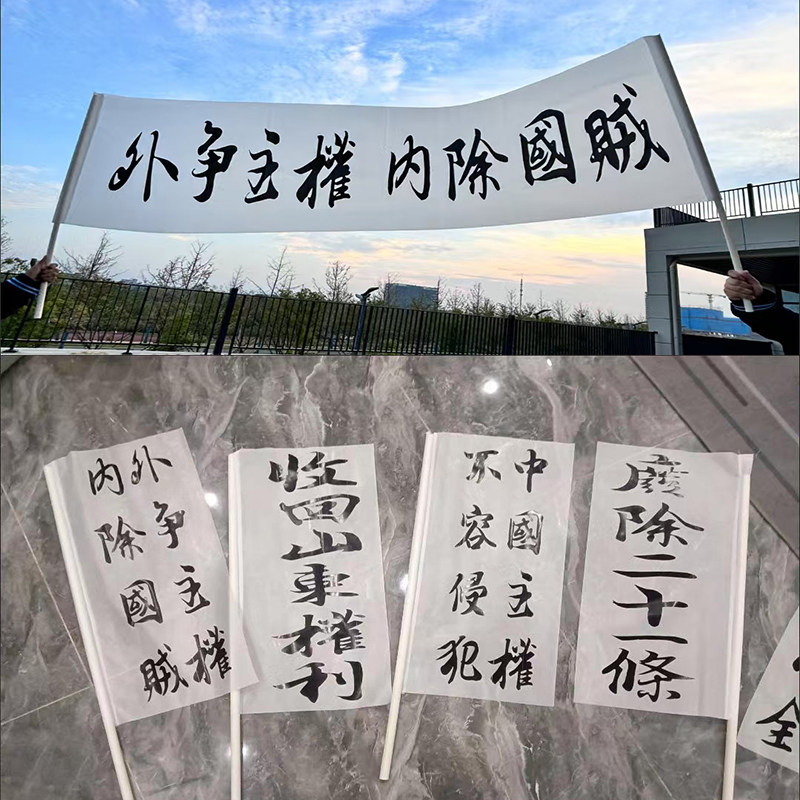 外争主權 内除國賊
外争主權
内除國賊
收回山東權利
中國主權
不容侵犯
廢除二十一條
全